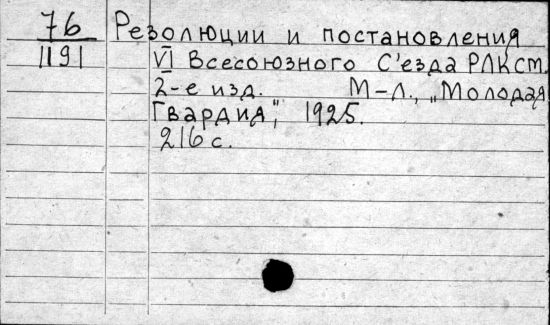 76 Резолюции и постановления
1191 VI Всесоюзного С'езда РЛКСМ.
2-е изд. М-Л., „Молодая
Гвардия", 1925.
216 с.